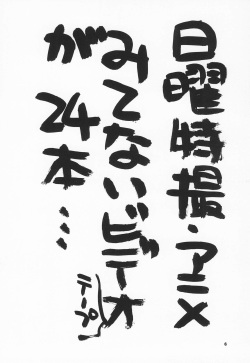 日曜特撮・アニメ
みてないビデオテープ
が24本…
6